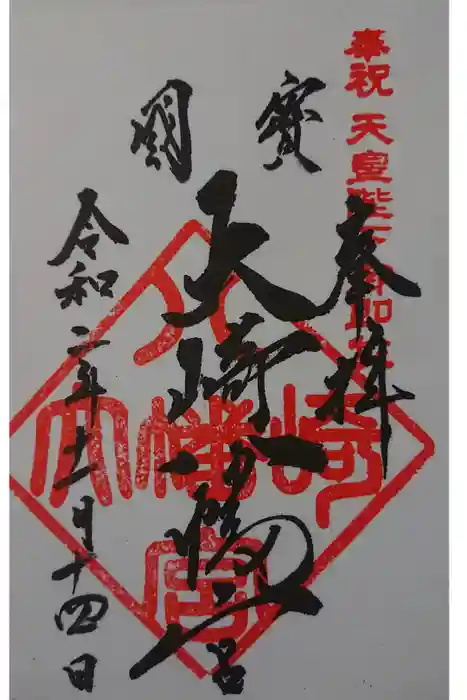 奉祝 天皇陛下御即位
奉拝
國寶
大崎八幡宮
八
大幡崎
宮
令和二年十一月十四日